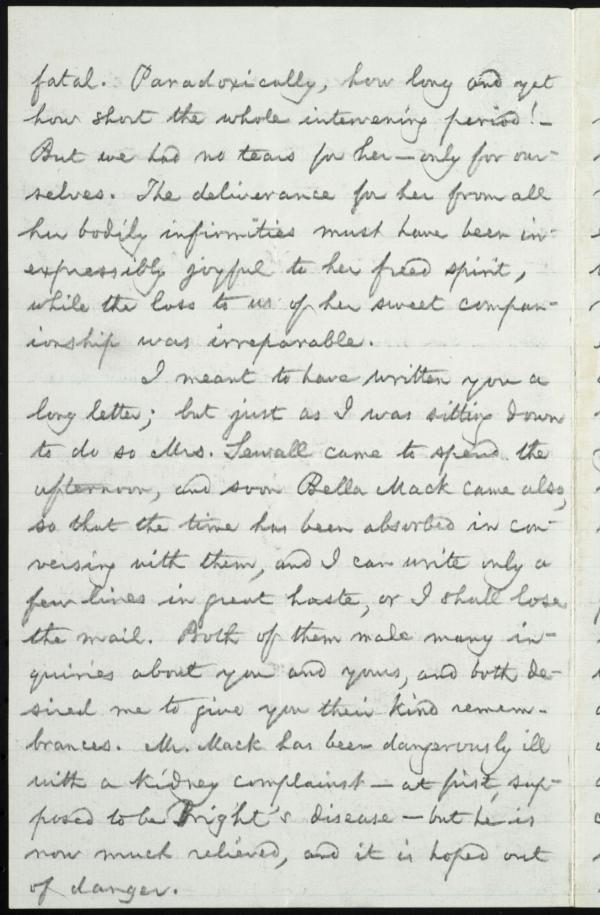 fatal. Paradoxically, how long and yet
how short the whole intervening period! –
But we had no tears for her – only for our-
selves. The deliverance for her from all
her bodily infirmities must have been in-
expressibly joyful to her freed spirit,
while the loss to us of her sweet compan-
ionship was irreparable.
I meant to have written you a
long letter; but just as I was sitting down
to do so Mrs. Sewall came to spend the
afternoon, and soon Bella Mack came also,
so that the time has been absorbed in con-
versing with them, and I can write only a
few lines in great haste, or I shall lose
the mail. Both of them made many in-
quiries about you and yours, and both de-
sired me to give you their kind remem-
brances. Mr. Mack has been dangerously ill
with a kidney complainst – at first, sup-
posed to be Bright's disease – but he is
now much relieved, and it is hoped out
of danger.